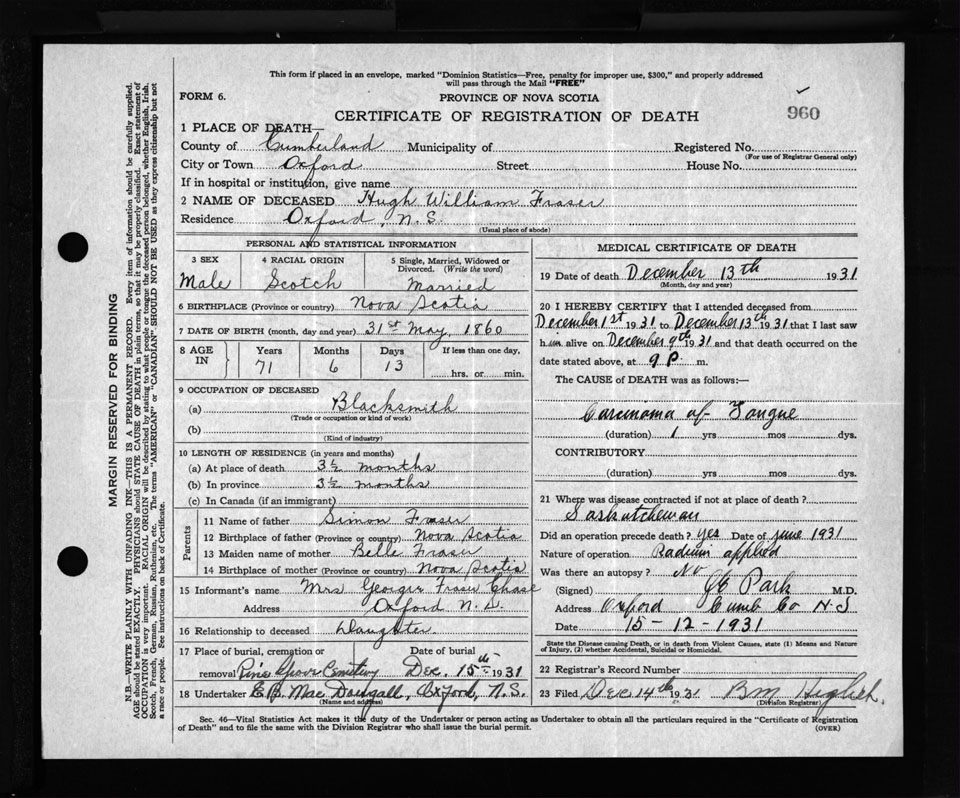 This form if placed in an envelope, marked "Dominion Statistics—Free, penalty for improper use, $300," and properly addressed
will pass through the Mail "FREE"
FORM 6.
PROVINCE OF NOVA SCOTIA
960
CERTIFICATE OF REGISTRATION OF DEATH
1 PLACE OF DEATH—
County of Cumberland Municipality of Registered No.
(For use of Registrar General only)
City or Town Oxford Street House No.
If in hospital or institution, give name
2 NAME OF DECEASED Hugh William Fraser
Residence Oxford, N.S.
(Usual place of abode)
PERSONAL AND STATISTICAL INFORMATION
3 SEX 4 RACIAL ORIGIN 5 Single, Married, Widowed or
Divorced. (Write the word)
Male Scotch Married
6 BIRTHPLACE (Province or country) Nova Scotia
7 DATE OF BIRTH (month, day and year) 31st May, 1860
8 AGE IN Years Months Days If less than one day,
71 6 13 hrs. or min.
9 OCCUPATION OF DECEASED
(a) Blacksmith
(Trade or occupation or kind of work)
(b)
(Kind of industry)
10 LENGTH OF RESIDENCE (in years and months)
(a) At place of death 3½ months
(b) In province 3½ months
(c) In Canada (if an immigrant)
Parents
11 Name of father Simon Fraser
12 Birthplace of father (Province or country) Nova Scotia
13 Maiden name of mother Belle Fraser
14 Birthplace of mother (Province or country) Nova Scotia
15 Informant's name Mrs Fraser Chase
Address Oxford N.S.
16 Relationship to deceased Daughter.
17 Place of burial, cremation or Date of burial
removal Pine Grove Cemetery Dec. 15th 1931
18 Undertaker E.B. Mac Dougall, Oxford, N.S.
(Name and address)
MEDICAL CERTIFICATE OF DEATH
19 Date of death December 13th 1931
(Month, day and year)
20 I HEREBY CERTIFY that I attended deceased from
December 1st 1931 to December 13th 1931 that I last saw
him alive on December 9th 1931 and that death occurred on the
date stated above, at 9 P. m.
The CAUSE OF DEATH was as follows:—
Carcinoma of Tongue
(duration) 1 yrs mos dys.
CONTRIBUTORY
(duration) yrs mos dys.
21 Where was disease contracted if not at place of death?
Saskatchewan
Did an operation precede death? yes Date of June 1931
Nature of operation Radium applied
Was there an autopsy? No
(Signed) Park M.D.
Address Oxford Cumb Co N.S
Date 15-12-1931
State the Disease causing Death, or in death from Violent Causes, state (1) Means and Nature
of Injury, (2) whether Accidental, Suicidal or Homicidal.
22 Registrar's Record Number
23 Filed Dec 14th 1931 BM
(Division Registrar)
Sec. 46—Vital Statistics Act makes it the duty of the Undertaker or person acting as Undertaker to obtain all the particulars required in the "Certificate of Registration
of Death" and to file the same with the Division Registrar who shall issue the burial permit.
(OVER)
MARGIN RESERVED FOR BINDING
N.B.—WRITE PLAINLY WITH UNFADING INK—THIS IS A PERMANENT RECORD. Every item of information should be carefully supplied.
AGE should be stated EXACTLY. PHYSICIANS should STATE CAUSE OF DEATH in plain terms, so that it may be properly classified. Exact statement of
OCCUPATION is very important. RACIAL ORIGIN will be described by stating to what people or tongue the deceased person belonged, whether English, Irish,
Scotch, French, German, Russian, Ruthenian, etc. The terms "AMERICAN" or "CANADIAN" SHOULD NOT BE USED as they express citizenship but not
a race or people. See instructions on back of Certificate.